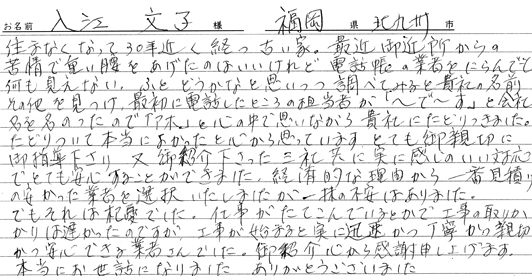 お名前 入江 文子 様 福岡 県 北九州 市
住まなくなって30年近く経つ古い家。最近御近所からの
苦情で重い腰をあげたのはいいけれど電話帳の業者をにらんでて
何も見えない。ふとどうかなと思いつつ調べてみると貴社の名前
その他を見つけ、最初に電話したところの担当者が「〜で〜す」と会社
名を名のったので「アホ」と心の中で思いながら貴社にたどりつきました。
たどりついて本当によかったと心から思っています とても御親切に
御指導下さり 又 御紹介下さった三社共に実に感じのいい対応
でとても安心することができました 経済的な理由から一番見積り
の安かった業者を選択いたしましたが一抹の不安はありました。
でもそれは杞憂でした。仕事がたてこんでいるとかで工事の取りか
かりは遅かったのですが 工事が始まると実に迅速かつ丁寧かつ親切
かつ安心できる業者さんでした。御紹介心から感謝申し上げます。
本当にお世話になりました ありがとうございました